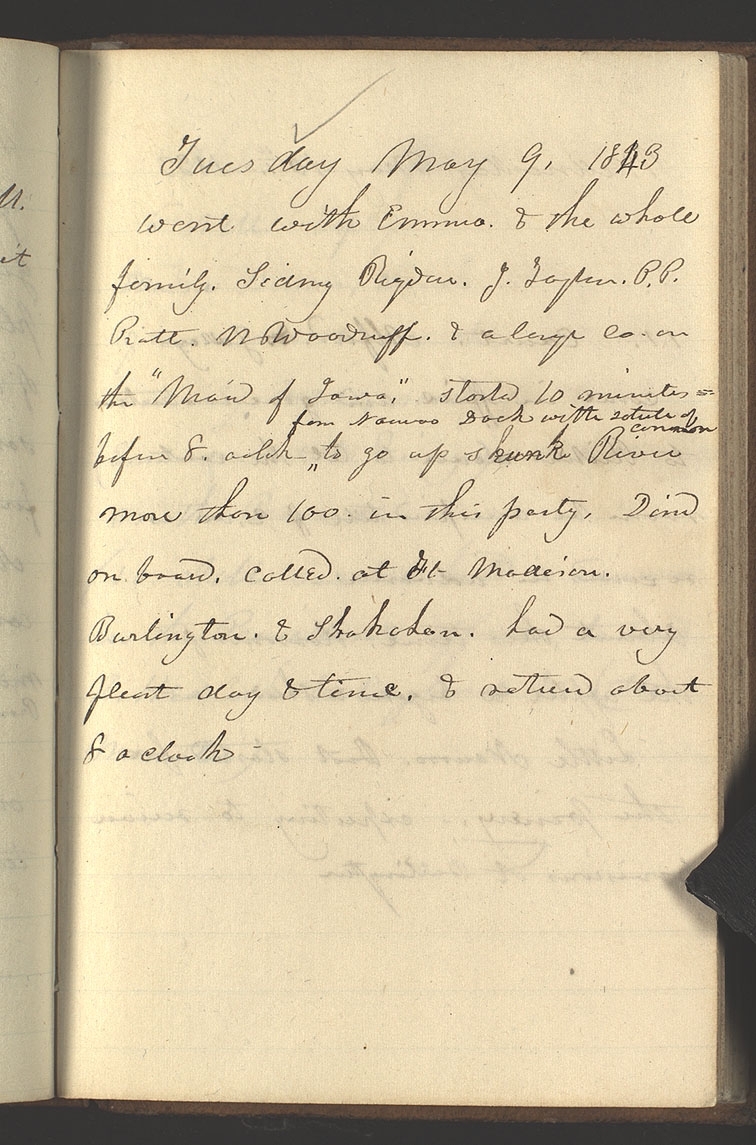 Tuesday May 9. 1843
went with Emma. & the whole
family. Sidny Rigdon. J. Taylor. P. P.
Pratt. W Woodruff. & a large co. on
the "Maid of Iowa," started 10 minutes=
from Nauvoo Dock with salute of cannon
before 8. oclock "to go up skunk River
more than 100. in this party. Dind
on board. called. at Ft Madison.
Burlington. & Shokokon. had a very
pleast day & time. & returnd about
8 oclock
ll.
it